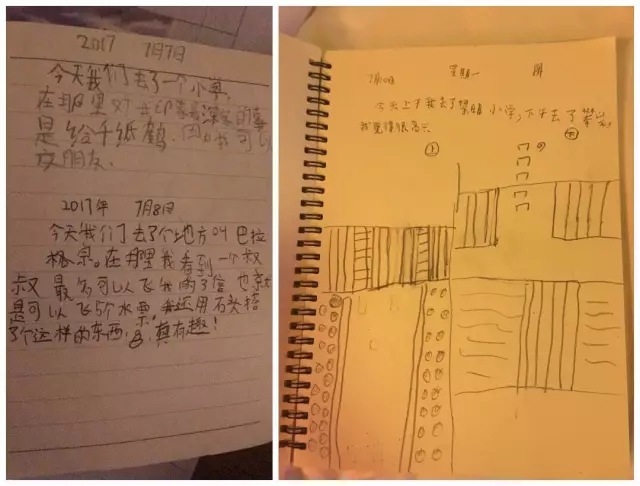 2017 7月7日
今天我们去了一个小学,
在那里对我印象最深的事
是给千纸鹤,因为我可以
交朋友.
2017年 7月8日
今天我们去了个地方叫巴拉
格宗。在那里我看到一个叔
叔最多可以飞我两个
是可以飞5个水票,我还用石头搭
了个这样的东西,真有趣!
7月10日 星期一 阴
今天上午我去了 小学,下午去了
我觉得很高兴
上
下